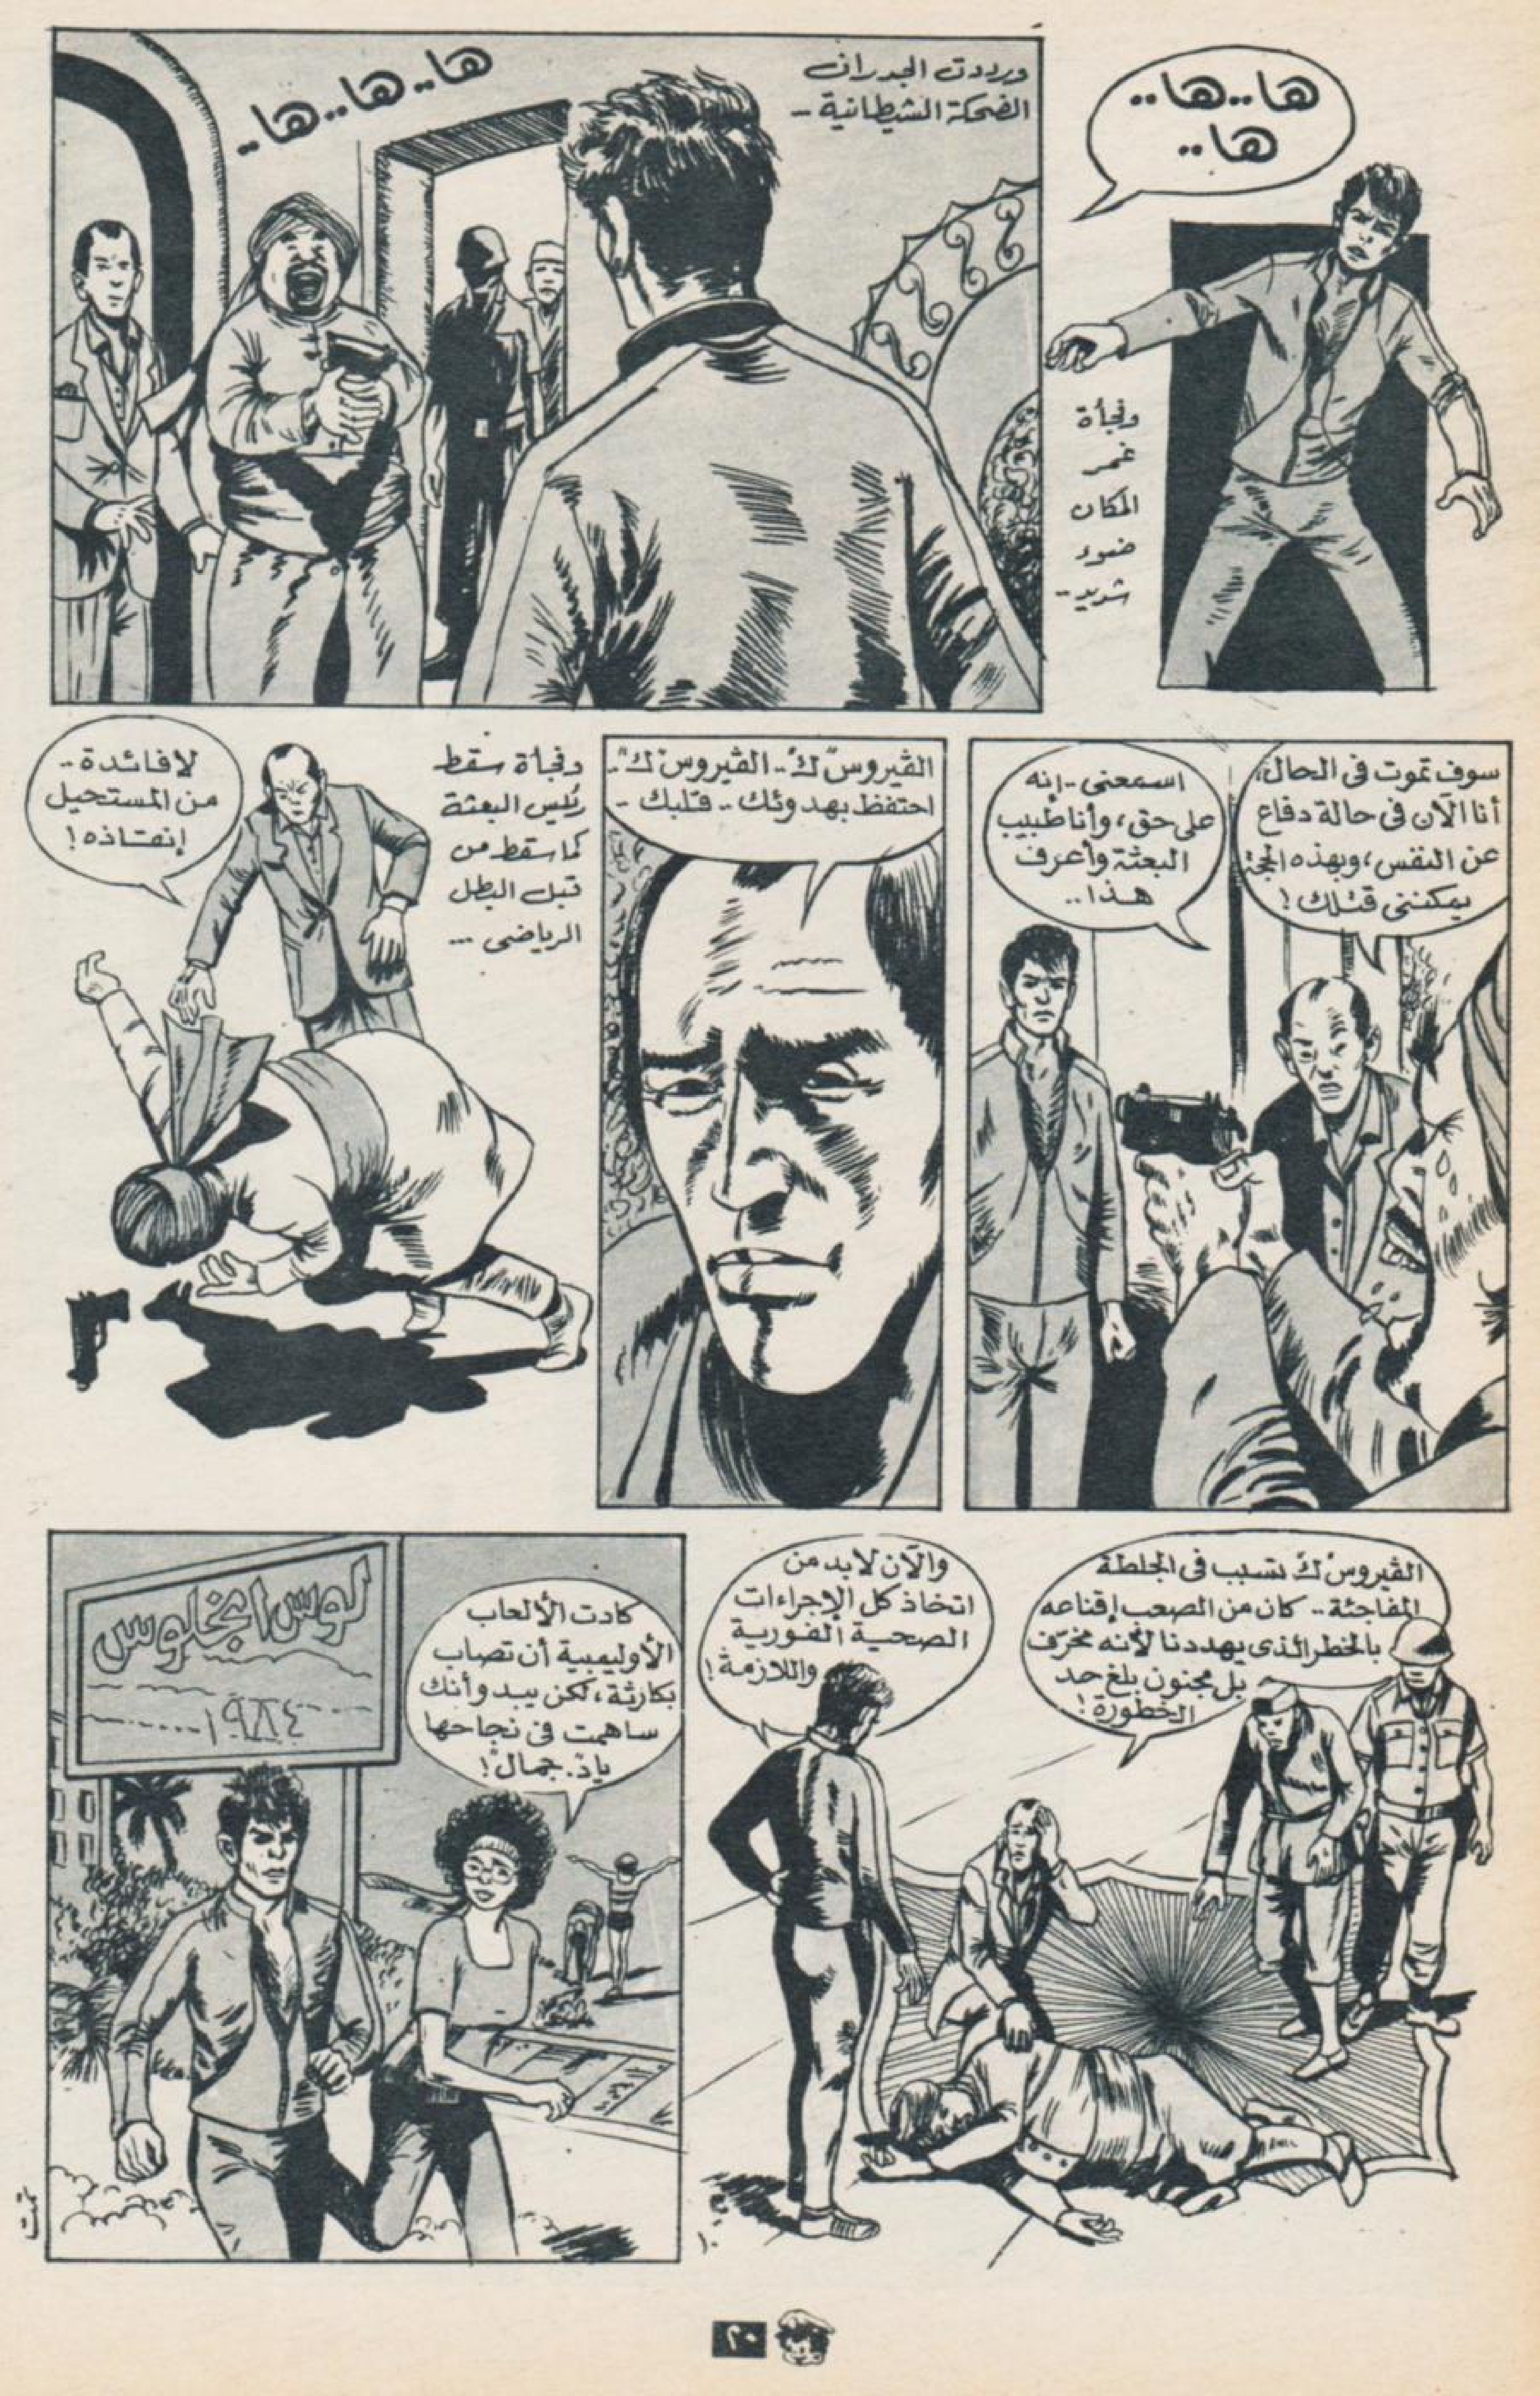 ها..ها..
ها..
وفجأة
غمر
المكان
ضوء
شديد..
ورددت الجدران
الضحكة الشيطانية..
ها..ها..ها..
سوف تموت في الحال،
أنا الآن في حالة دفاع
عن النفس، وبهذه الحجة
يمكنني قتلك!
اسمعني.. إنه
على حق، وأنا طبيب
البعثة وأعرف
هذا..
الڤيروس"ك".. الڤيروس"ك"..
احتفظ بهدوئك.. قلبك..
وفجأة سقط
رئيس البعثة
كما سقط من
قبل البطل
الرياضي...
لا فائدة..
من المستحيل
إنقاذه!
الڤيروس"ك" تسبب في الجلطة
المفاجئة.. كان من الصعب إقناعه
بالخطر الذي يهددنا لأنه مخرّف
بل مجنون بلغ حد
الخطورة!
والآن لابد من
اتخاذ كل الإجراءات
الصحية الفورية
واللازمة!
لوس انجلوس
١٩٨٤
كادت الألعاب
الأوليمبية أن تصاب
بكارثة، لكن يبدو أنك
ساهمت في نجاحها
ياد. جمال!
تمت
٢٠